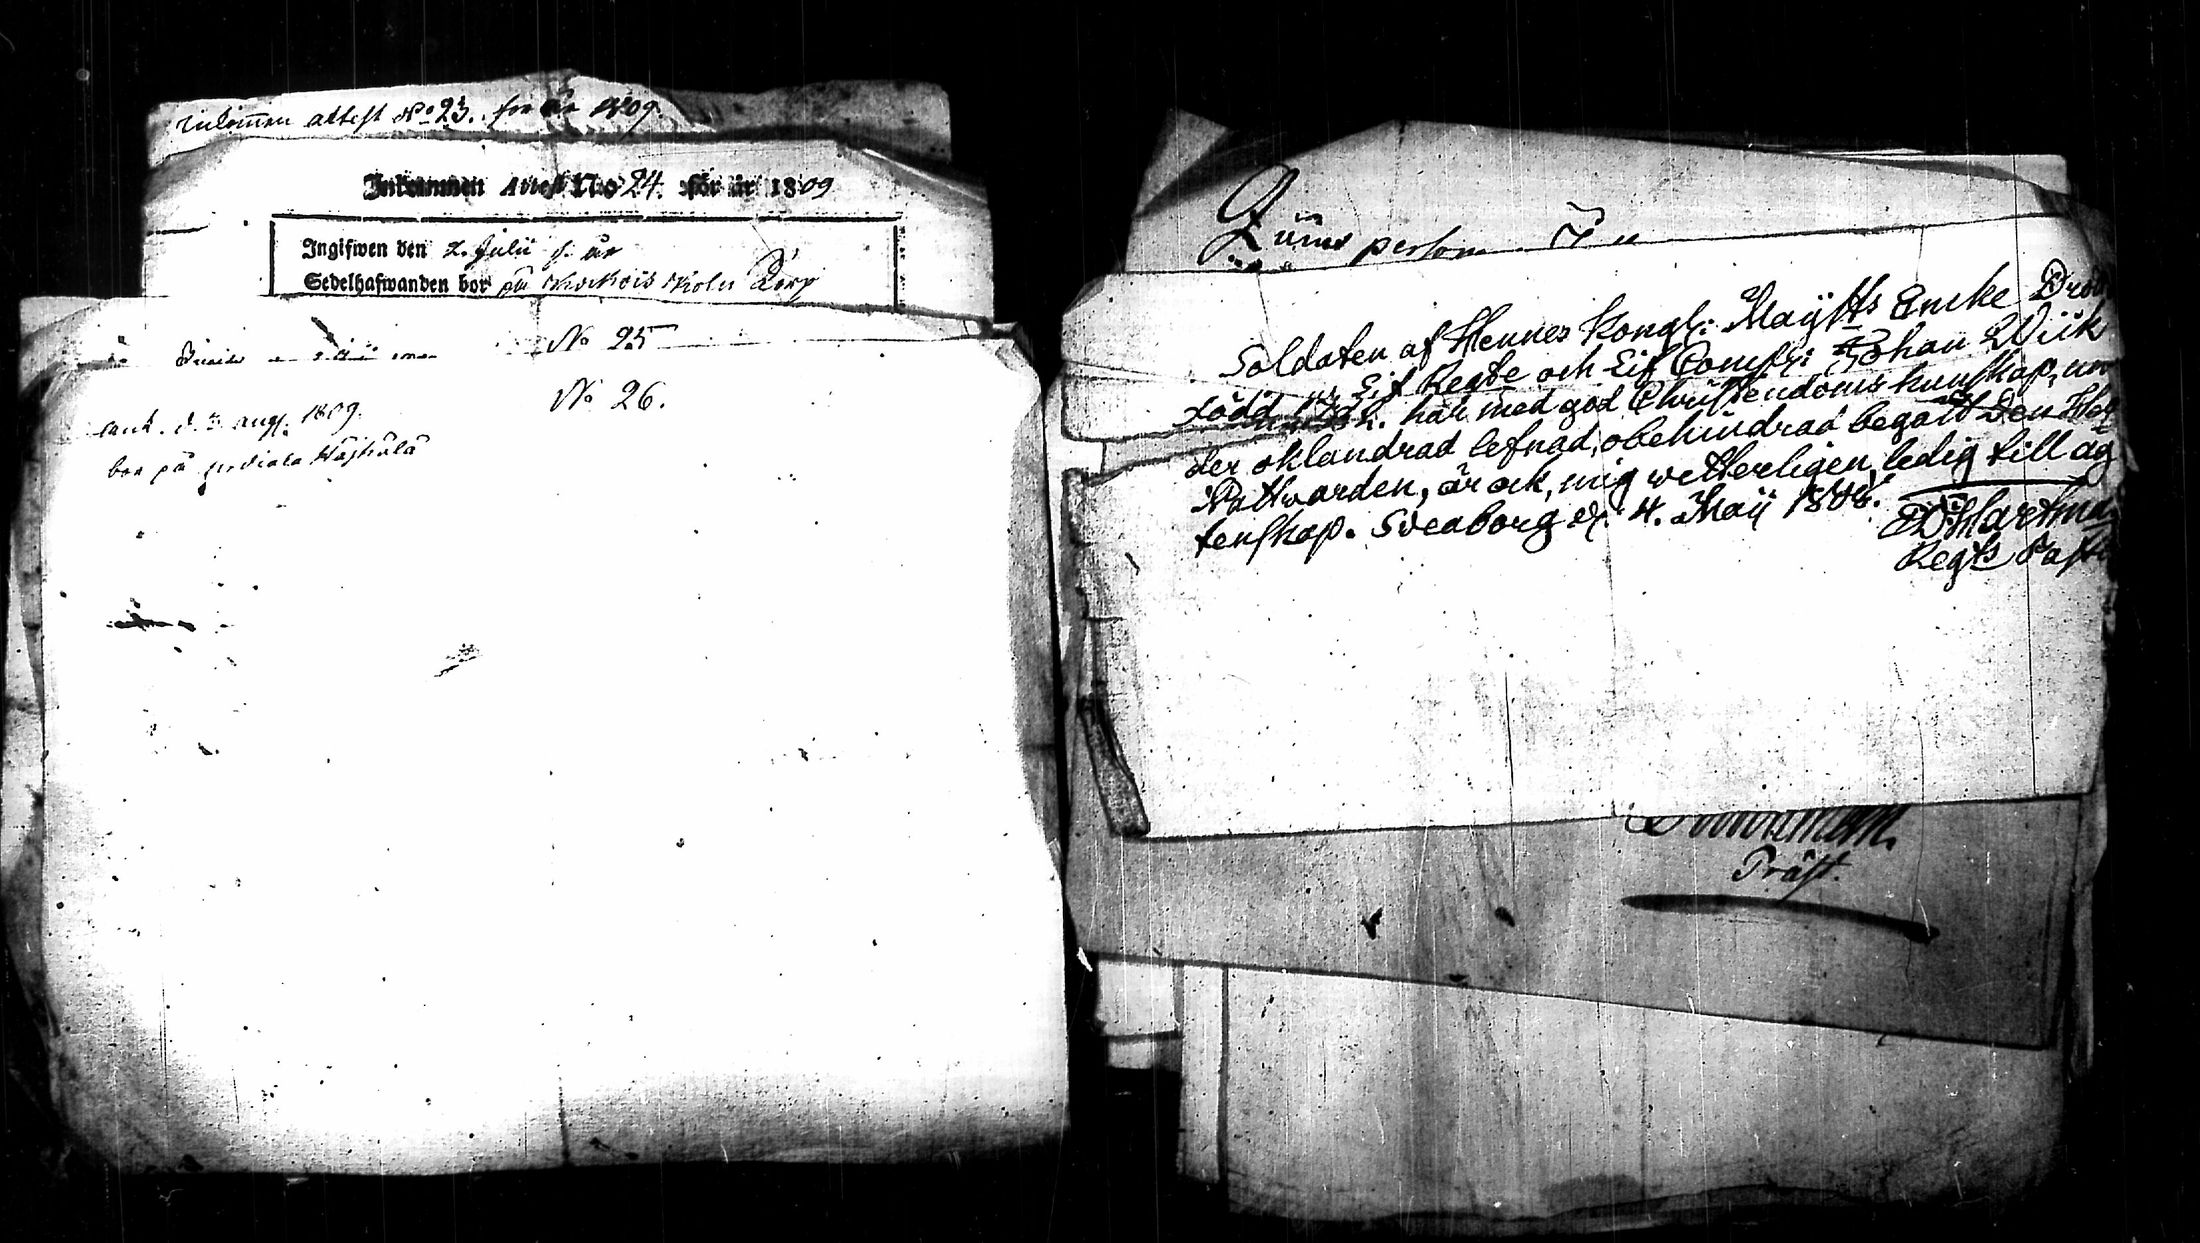 Inkommen attest No 23. för år 1809.
Inkommen Attest No 24. för år 1809
Ingifwen den 2. Julii s. år
Sedelhafwanden bor på
No 25
No 26.
ank. d. 3 aug. 1809.
bor på
person
Soldaten af Hennes Kongl: Maÿtts Encke Drott
Lif Regte och Lif Comp: Johan Wiik
född har med god Christendoms kunskap, un
der oklandrad lefnad, obehindrad begått Den Hel
Nattwarden, är ock, mig wetterligen, ledig till äg
tenskap. Sveaborg d. 4. Maij 1808.
Hartman
Regts Past
Präst.